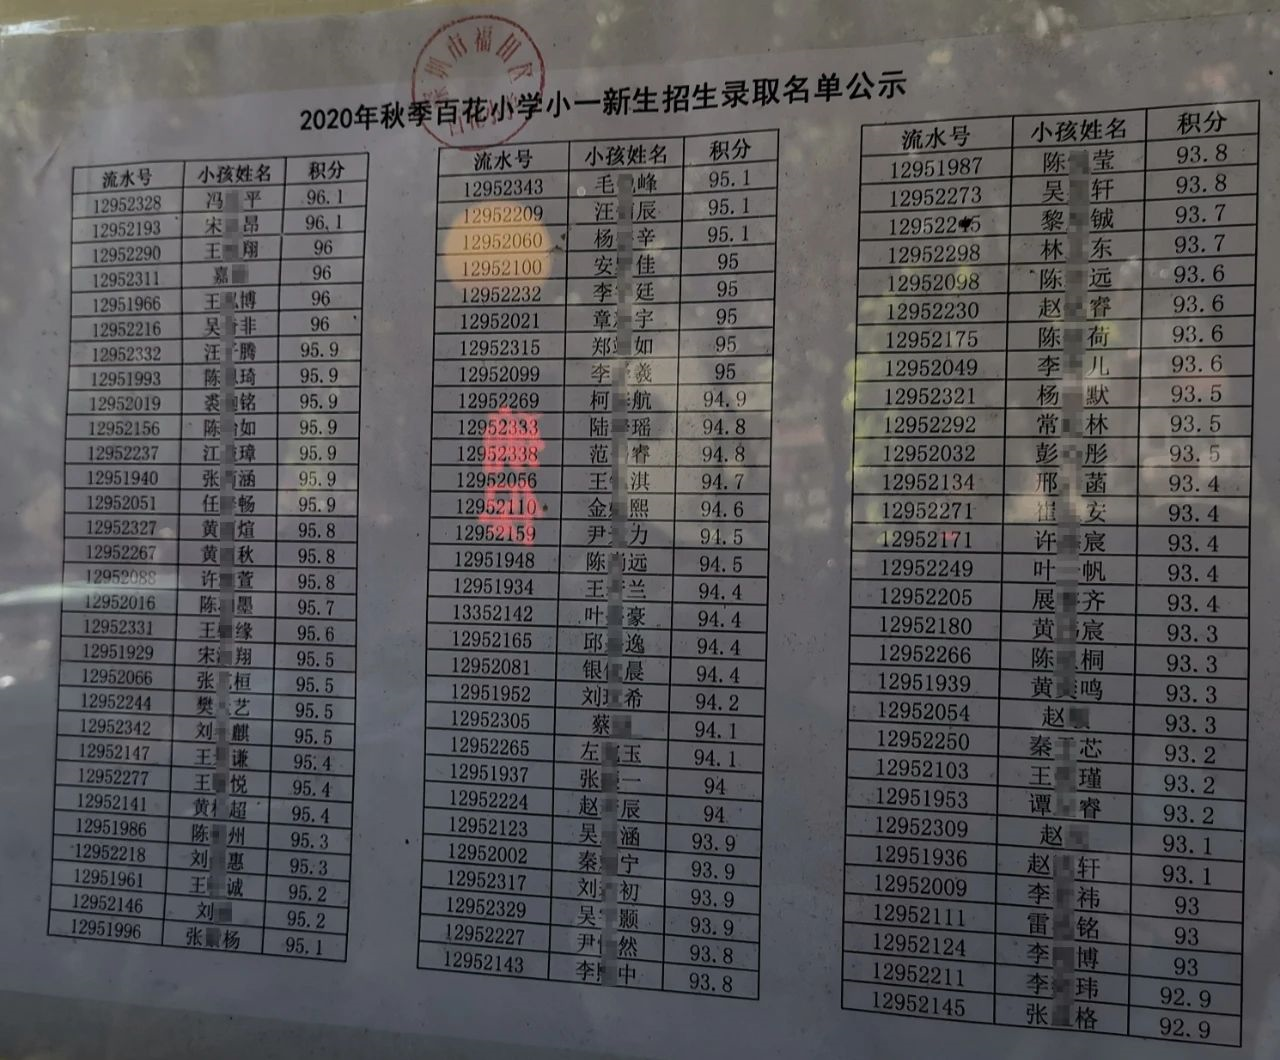 圳市福田区
2020年秋季百花小学小一新生招生录取名单公示
流水号 小孩姓名 积分
12952328 冯 平 96.1
12952193 宋 昂 96.1
12952290 王 翔 96
12952311 嘉 96
12951966 王 博 96
12952216 吴 非 96
12952332 汪 腾 95.9
12951993 陈 琦 95.9
12952019 裘 铭 95.9
12952156 陈 如 95.9
12952237 江 璋 95.9
12951940 张 涵 95.9
12952051 任 畅 95.9
12952327 黄 煊 95.8
12952267 黄 秋 95.8
12952088 许 萱 95.8
12952016 陈 墨 95.7
12952331 王 缘 95.6
12951929 宋 翔 95.5
12952066 张 桓 95.5
12952244 樊 艺 95.5
12952342 刘 麒 95.5
12952147 王 谦 95.4
12952277 王 悦 95.4
12952141 黄 超 95.4
12951986 陈 州 95.3
12952218 刘 惠 95.3
12951961 王 诚 95.2
12952146 刘 95.2
12951996 张 杨 95.1
流水号 小孩姓名 积分
12952343 毛 峰 95.1
12952209 汪 辰 95.1
12952060 杨 辛 95.1
12952100 安 佳 95
12952232 李 廷 95
12952021 章 宇 95
12952315 郑 如 95
12952099 李 羲 95
12952269 柯 航 94.9
12952333 陆 瑶 94.8
12952338 范 睿 94.8
12952056 王 淇 94.7
12952110 金 熙 94.6
12952159 尹 力 94.5
12951948 陈 远 94.5
12951934 王 兰 94.4
13352142 叶 豪 94.4
12952165 邱 逸 94.4
12952081 银 晨 94.4
12951952 刘 希 94.2
12952305 蔡 94.1
12952265 左 玉 94.1
12951937 张 一 94
12952224 赵 辰 94
12952123 吴 涵 93.9
12952002 秦 宁 93.9
12952317 刘 初 93.9
12952329 吴 颢 93.9
12952227 尹 然 93.8
12952143 李 中 93.8
流水号 小孩姓名 积分
12951987 陈 莹 93.8
12952273 吴 轩 93.8
129522 5 黎 铖 93.7
12952298 林 东 93.7
12952098 陈 远 93.6
12952230 赵 睿 93.6
12952175 陈 荷 93.6
12952049 李 儿 93.6
12952321 杨 默 93.5
12952292 常 林 93.5
12952032 彭 彤 93.5
12952134 邢 菡 93.4
12952271 崔 安 93.4
12952171 许 宸 93.4
12952249 叶 帆 93.4
12952205 展 齐 93.4
12952180 黄 宸 93.3
12952266 陈 桐 93.3
12951939 黄 鸣 93.3
12952054 赵 93.3
12952250 秦 芯 93.2
12952103 王 瑾 93.2
12951953 谭 睿 93.2
12952309 赵 93.1
12951936 赵 轩 93.1
12952009 李 祎 93
12952111 雷 铭 93
12952124 李 博 93
12952211 李 玮 92.9
12952145 张 格 92.9